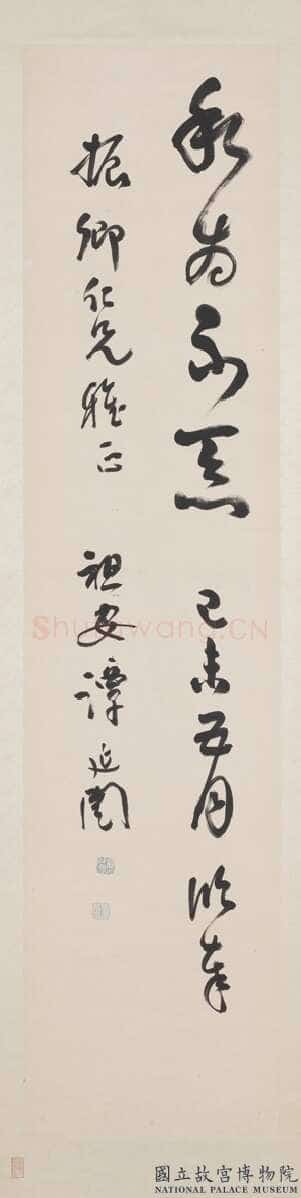 為不惡 己未五月 臨奉
振卿仁兄雅正 祖安譚延闓
Shufawang.CN
國立故宮博物院
NATIONAL PALACE MUSEUM